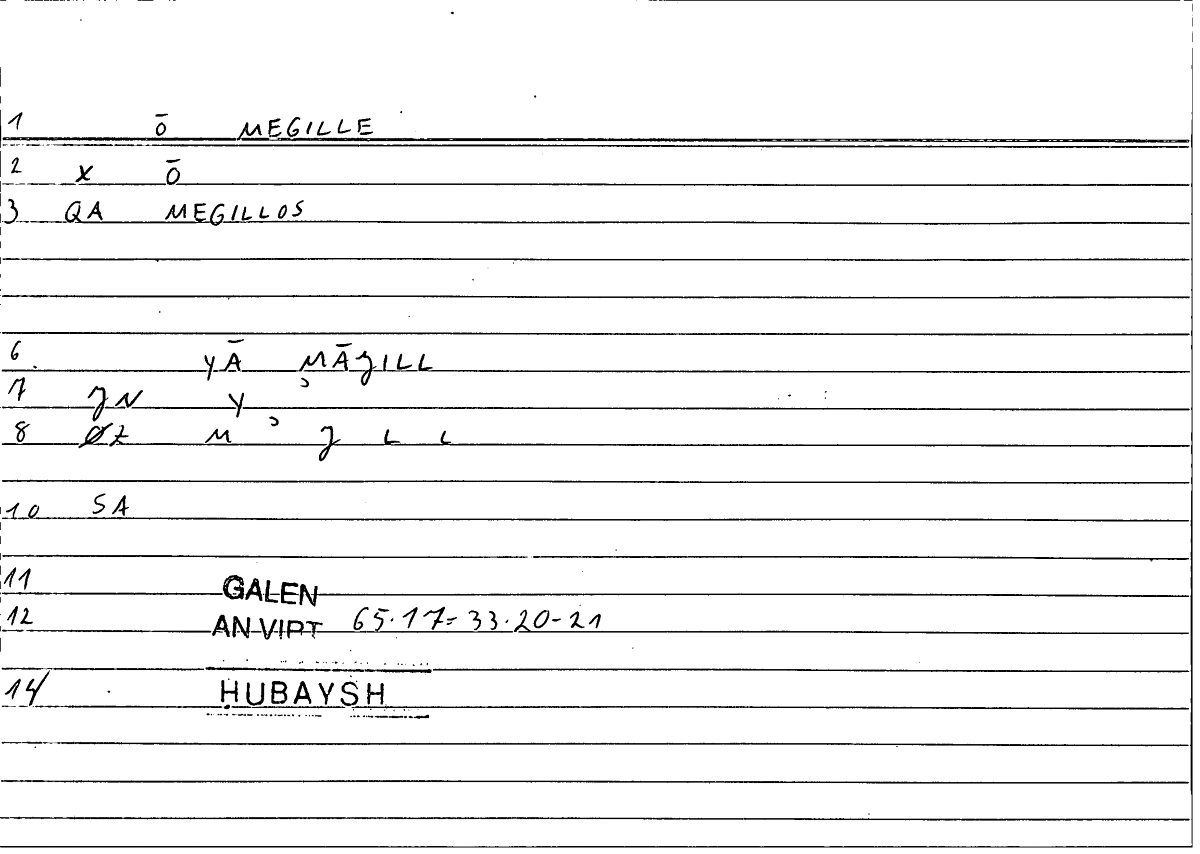 1 ō MEGILLE
2 X Ō
3 QA MEGILLOS
6. YĀ MĀGILL
7 GN Y ʾ
8 ØZ M ʾ G L L
10 SA
11 GALEN
12 AN VIRT 65.17=33.20-21
14/ ḤUBAYSH